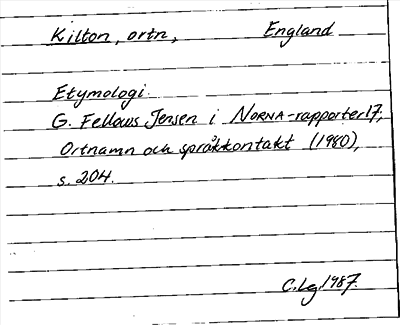 Kilton, ortn, England
Etymologi
G. Fellows Jensen i NORNA-rapporter 17,
Ortnamn och språkkontakt (1980),
s. 204.
C. Lg 1987.